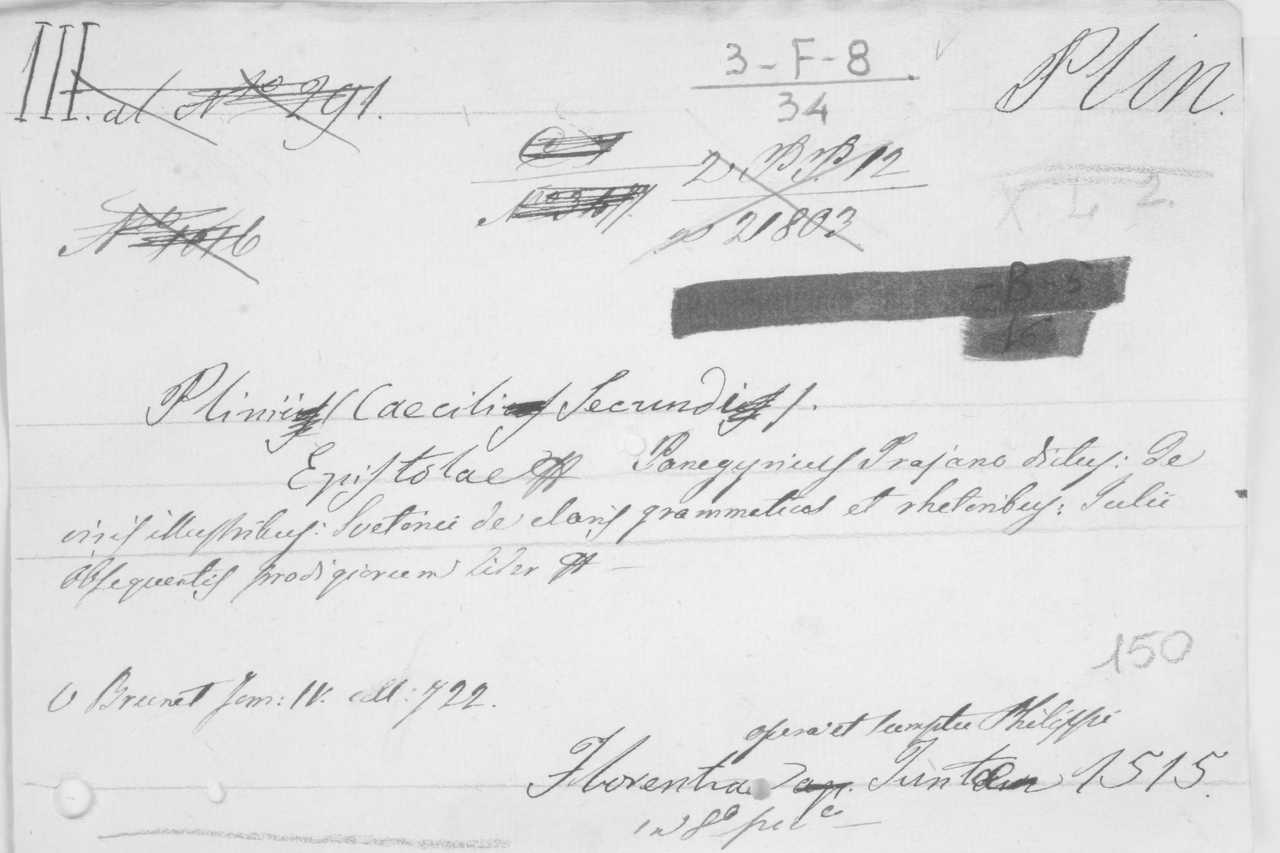 III. al No 291.
3-F-8
34
Plin.
2. B.B. 12
no 21803
X L 2.
-B-5
16
Plinii Caecili Secundi
Epistolae Panegyricus Trajano dictus: De
viris illustribus: Svetonii de claris grammaticis et rhetoribus: Julii
Obsequentis prodigiorum liber
150
V Brunet Tom: IV. coll: 722.
opera et sumptu Philippi
Florentiae Juntae 1515.
in 8o picc